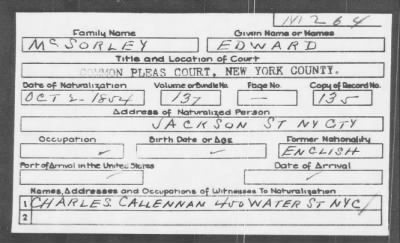 M264
Family Name Given Name or Names
McSORLEY EDWARD
Title and Location of Court
COMMON PLEAS COURT, NEW YORK COUNTY.
Date of Naturalization Volume or Bundle No. Page No. Copy of Record No.
OCT 2-1854 137 — 135
Address of Naturalized Person
JACKSON ST NY CTY
Occupation Birth Date or Age Former Nationality
ENGLISH
Port of Arrival in the United States Date of Arrival
Names, Addresses and Occupations of Witnesses To Naturalization
1 CHARLES CALLENNAN 450 WATER ST NYC
2